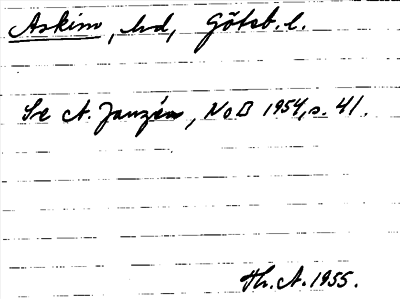 Askim, hd, Göteb. l.
Se A. Janzén, NoB 1954, s. 41.
Th. A. 1955.